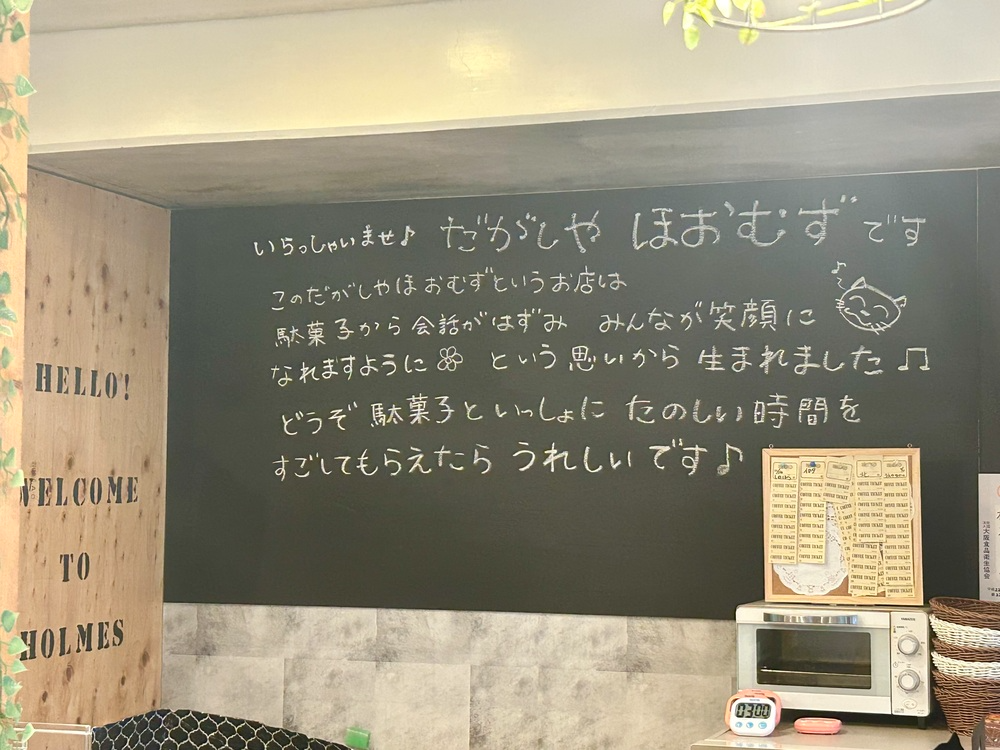 いらっしゃいませ♪ だがしや ほおむずです
このだがしやほおむずというお店は
駄菓子から会話がはずみ みんなが笑顔に
なれますように という思いから 生まれました♫
どうぞ 駄菓子といっしょに たのしい時間を
すごしてもらえたら うれしいです♪
HELLO!
WELCOME
TO
HOLMES
COFFEE TICKET
大阪食品衛生協会
03:00